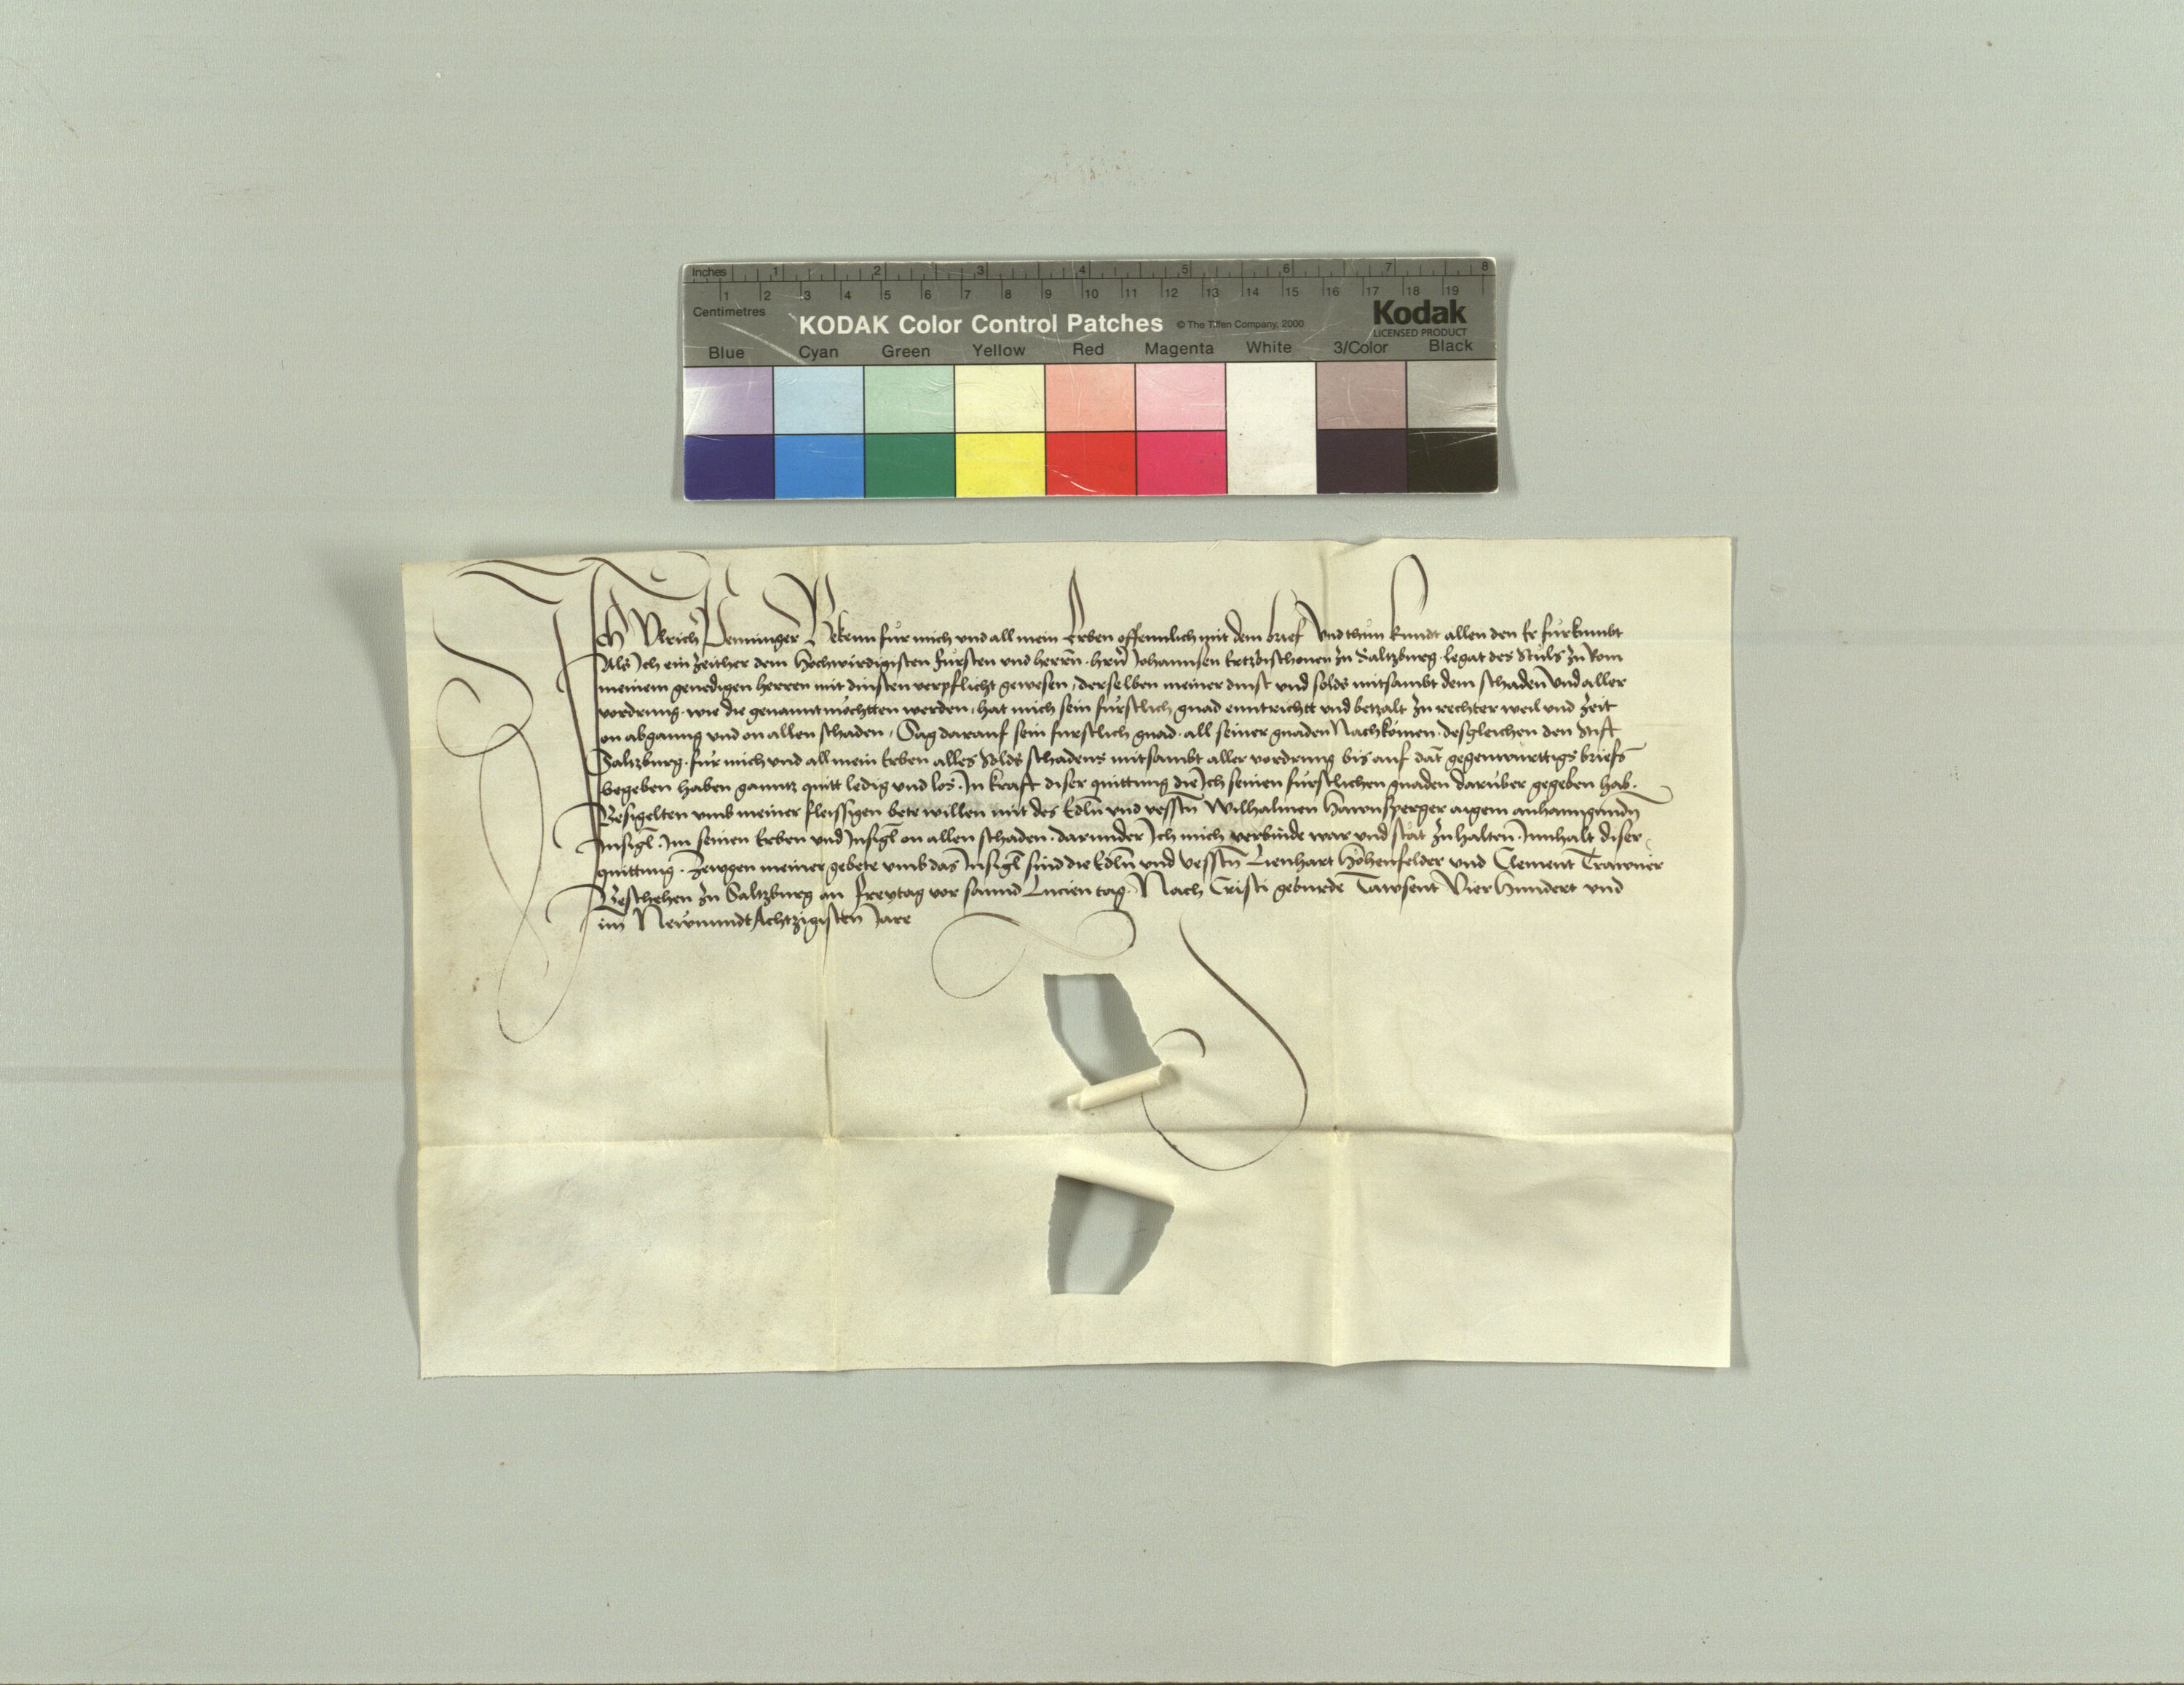 Inches 1 2 3 4 5 6 7 8
1 2 3 4 5 6 7 8 9 10 11 12 13 14 15 16 17 18 19
Centimetres
KODAK Color Control Patches © The Tiffen Company, 2000 Kodak
LICENSED PRODUCT
Blue Cyan Green Yellow Red Magenta White 3/Color Black
Ich Vlrich Bekenn für mich vnd all mein Erben offennlich mit dem brief Vnd thün kundt allen den Er fürkumbt
Als Ich ein zeither dem Hochwirdigisten fürsten vnd herrn̄ . hrn̄ Johannsen Ertzbischouen zu Saltzburg . legat des Stůls zu Rom
meinem genedigen herren mit dinsten verpflicht gewesen , derselben meiner dinst vnd solds mitsambt dem schaden vnd aller
vordrung . wie die genannt möchtten werden , hat mich sein fürstlich gnad enntrichtt vnd betzalt zu rechter weil vnd zeit
on abganng vnd on allen schaden , Sag darauf sein fürstlich gnad . all seiner gnaden Nachkomen . desgleichen den Stift
Saltzburg . für mich vnd all mein Erben alles Solds schadens mitsambt aller vordrung bis auf dat̄ gegenwurttigs briefs
begeben haben ganntz quitt ledig vnd los . In kraft diser quittung die Ich seinen fürstlichen gnaden darüber gegeben hab .
Besigelten vmb meiner fleissigen bete willen mit des Edln̄ vnd vesstn̄ Wilhalmen Hawnsperger aigem anhanngundn̄
Insigl̄ . Im seinen Erben vnd Insigl̄ on allen schaden . darunder Ich mich verbinde war vnd stät zu halten Innhalt diser
quittung . Zewgen meiner gebete vmb das Insigl̄ sind die Edln̄ vnd vesstn̄ Lienhart Hohenfelder vnd Clement Trawner
Beschehen zu Saltzburg an freytag vor sannd Lucien tag . Nach Cristi geburde Tawsent Vierhundert vnd
im̄ NewnundtAchtzigisten Jare